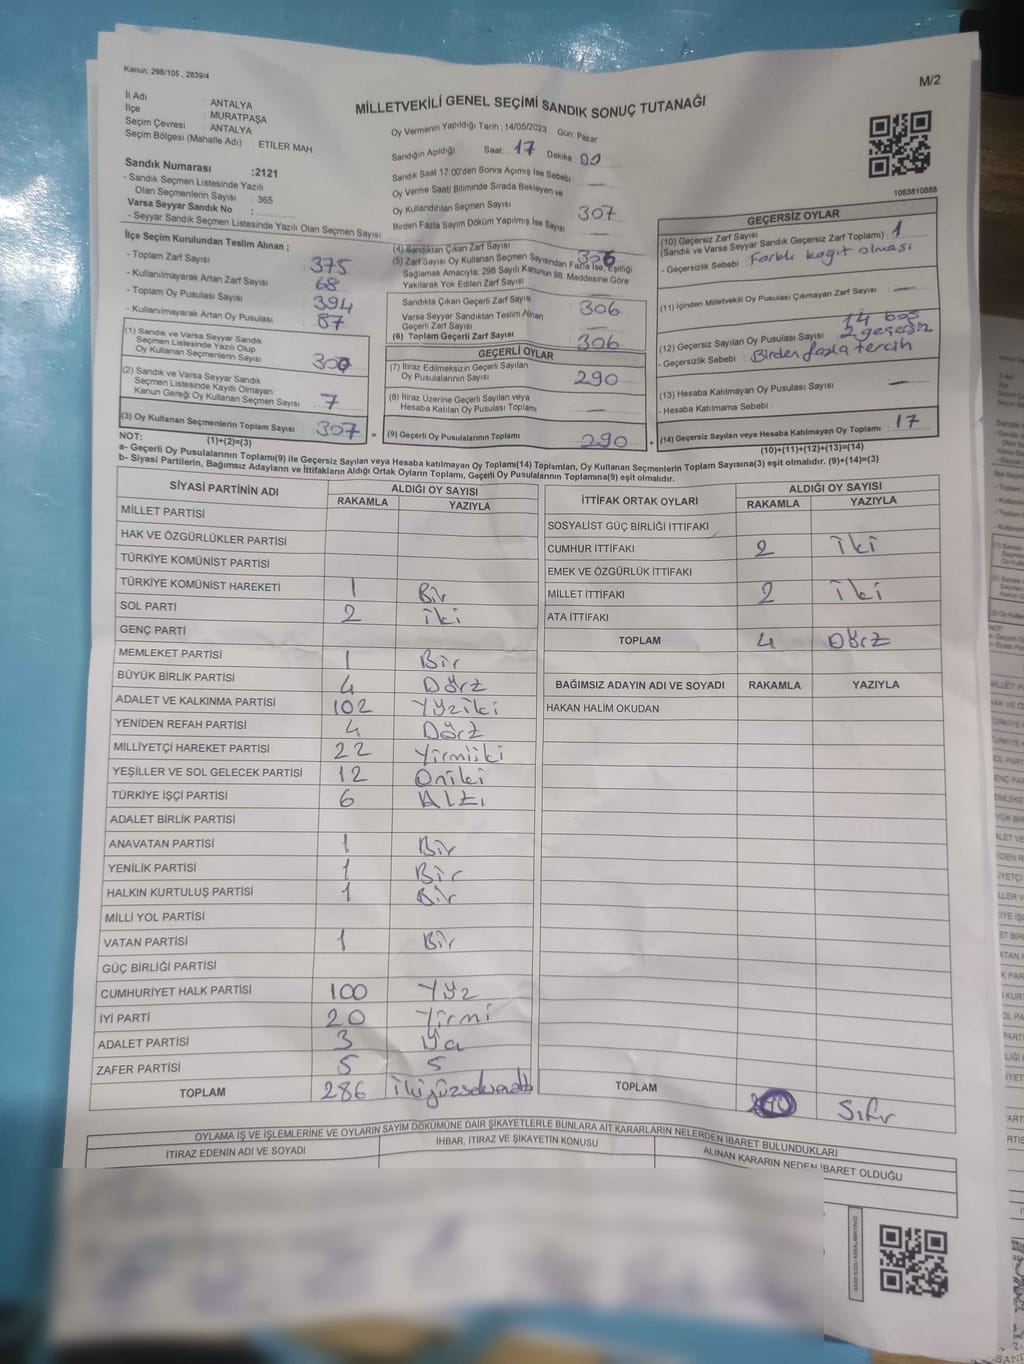 Kanun; 298/105 , 2839/4
M/2
MİLLETVEKİLİ GENEL SEÇİMİ SANDIK SONUÇ TUTANAĞI
İl Adı : ANTALYA
İlçe : MURATPAŞA
Seçim Çevresi : ANTALYA
Seçim Bölgesi (Mahalle Adı) : ETİLER MAH.
Oy Vermenin Yapıldığı Tarih :14/05/2023 Gün: Pazar
Sandığın Açıldığı Saat: 17 Dakika: 00
Sandık Saat 17:00'den Sonra Açılmış İse Sebebi : —
Oy Verme Saati Bitiminde Sırada Bekleyen ve
Oy Kullandırılan Seçmen Sayısı 307
Birden Fazla Sayım Döküm Yapılmış İse Sayısı —
1083810888
Sandık Numarası :2121
- Sandık Seçmen Listesinde Yazılı
Olan Seçmenlerin Sayısı : 365
Varsa Seyyar Sandık No :
- Seyyar Sandık Seçmen Listesinde Yazılı Olan Seçmen Sayısı
İlçe Seçim Kurulundan Teslim Alınan ;
- Toplam Zarf Sayısı : 375
- Kullanılmayarak Artan Zarf Sayısı : 68
- Toplam Oy Pusulası Sayısı : 394
- Kullanılmayarak Artan Oy Pusulası : 87
(1) Sandık ve Varsa Seyyar Sandık
Seçmen Listesinde Yazılı Olup
Oy Kullanan Seçmenlerin Sayısı : 300
(2) Sandık ve Varsa Seyyar Sandık
Seçmen Listesinde Kayıtlı Olmayan
Kanun Gereği Oy Kullanan Seçmen Sayısı : 7
(3) Oy Kullanan Seçmenlerin Toplam Sayısı 307
(1)+(2)=(3)
(4) Sandıktan Çıkan Zarf Sayısı 306
(5) Zarf Sayısı Oy Kullanan Seçmen Sayısından Fazla İse, Eşitliği
Sağlamak Amacıyla, 298 Sayılı Kanunun 98. Maddesine Göre
Yakılarak Yok Edilen Zarf Sayısı
Sandıkta Çıkan Geçerli Zarf Sayısı : 306
Varsa Seyyar Sandıktan Teslim Alınan
Geçerli Zarf Sayısı : —
(6) Toplam Geçerli Zarf Sayısı : 306
GEÇERLİ OYLAR
(7) İtiraz Edilmeksizin Geçerli Sayılan
Oy Pusulalarının Sayısı : 290
(8) İtiraz Üzerine Geçerli Sayılan veya
Hesaba Katılan Oy Pusulası Toplamı : —
= (9) Geçerli Oy Pusulalarının Toplamı : 290
GEÇERSİZ OYLAR
(10) Geçersiz Zarf Sayısı
(Sandık ve Varsa Seyyar Sandık Geçersiz Zarf Toplamı) : 1
- Geçersizlik Sebebi : Farklı kağıt olması
(11) İçinden Milletvekili Oy Pusulası Çıkmayan Zarf Sayısı : —
14 boş
(12) Geçersiz Sayılan Oy Pusulası Sayısı : 2 geçersiz
- Geçersizlik Sebebi : Birden fazla tercih
(13) Hesaba Katılmayan Oy Pusulası Sayısı : —
- Hesaba Katılmama Sebebi :
+ (14) Geçersiz Sayılan veya Hesaba Katılmayan Oy Toplamı : 17
(10)+(11)+(12)+(13)=(14)
NOT:
a- Geçerli Oy Pusulalarının Toplamı(9) ile Geçersiz Sayılan veya Hesaba katılmayan Oy Toplamı(14) Toplamları, Oy Kullanan Seçmenlerin Toplam Sayısına(3) eşit olmalıdır. (9)+(14)=(3)
b- Siyasi Partilerin, Bağımsız Adayların ve İttifakların Aldığı Ortak Oyların Toplamı, Geçerli Oy Pusulalarının Toplamına(9) eşit olmalıdır.
SİYASİ PARTİNİN ADI ALDIĞI OY SAYISI
RAKAMLA YAZIYLA
MİLLET PARTİSİ
HAK VE ÖZGÜRLÜKLER PARTİSİ
TÜRKİYE KOMÜNİST PARTİSİ
TÜRKİYE KOMÜNİST HAREKETİ 1 Bir
SOL PARTİ 2 iki
GENÇ PARTİ
MEMLEKET PARTİSİ 1 Bir
BÜYÜK BİRLİK PARTİSİ 4 Dört
ADALET VE KALKINMA PARTİSİ 102 Yüziki
YENİDEN REFAH PARTİSİ 4 Dört
MİLLİYETÇİ HAREKET PARTİSİ 22 Yirmiiki
YEŞİLLER VE SOL GELECEK PARTİSİ 12 Oniki
TÜRKİYE İŞÇİ PARTİSİ 6 Altı
ADALET BİRLİK PARTİSİ
ANAVATAN PARTİSİ 1 Bir
YENİLİK PARTİSİ 1 Bir
HALKIN KURTULUŞ PARTİSİ 1 Bir
MİLLİ YOL PARTİSİ
VATAN PARTİSİ 1 Bir
GÜÇ BİRLİĞİ PARTİSİ
CUMHURİYET HALK PARTİSİ 100 Yüz
İYİ PARTİ 20 Yirmi
ADALET PARTİSİ 3
ZAFER PARTİSİ 5 5
TOPLAM 286 İkiyüzseksenaltı
İTTİFAK ORTAK OYLARI ALDIĞI OY SAYISI
RAKAMLA YAZIYLA
SOSYALİST GÜÇ BİRLİĞİ İTTİFAKI
CUMHUR İTTİFAKI 2 iki
EMEK VE ÖZGÜRLÜK İTTİFAKI
MİLLET İTTİFAKI 2 iki
ATA İTTİFAKI
TOPLAM 4 Dört
BAĞIMSIZ ADAYIN ADI VE SOYADI RAKAMLA YAZIYLA
HAKAN HALİM OKUDAN
TOPLAM Sıfır
OYLAMA İŞ VE İŞLEMLERİNE VE OYLARIN SAYIM DÖKÜMÜNE DAİR ŞİKAYETLERLE BUNLARA AİT KARARLARIN NELERDEN İBARET BULUNDUKLARI
İTİRAZ EDENİN ADI VE SOYADI İHBAR, İTİRAZ VE ŞİKAYETİN KONUSU ALINAN KARARIN NEDEN İBARET OLDUĞU